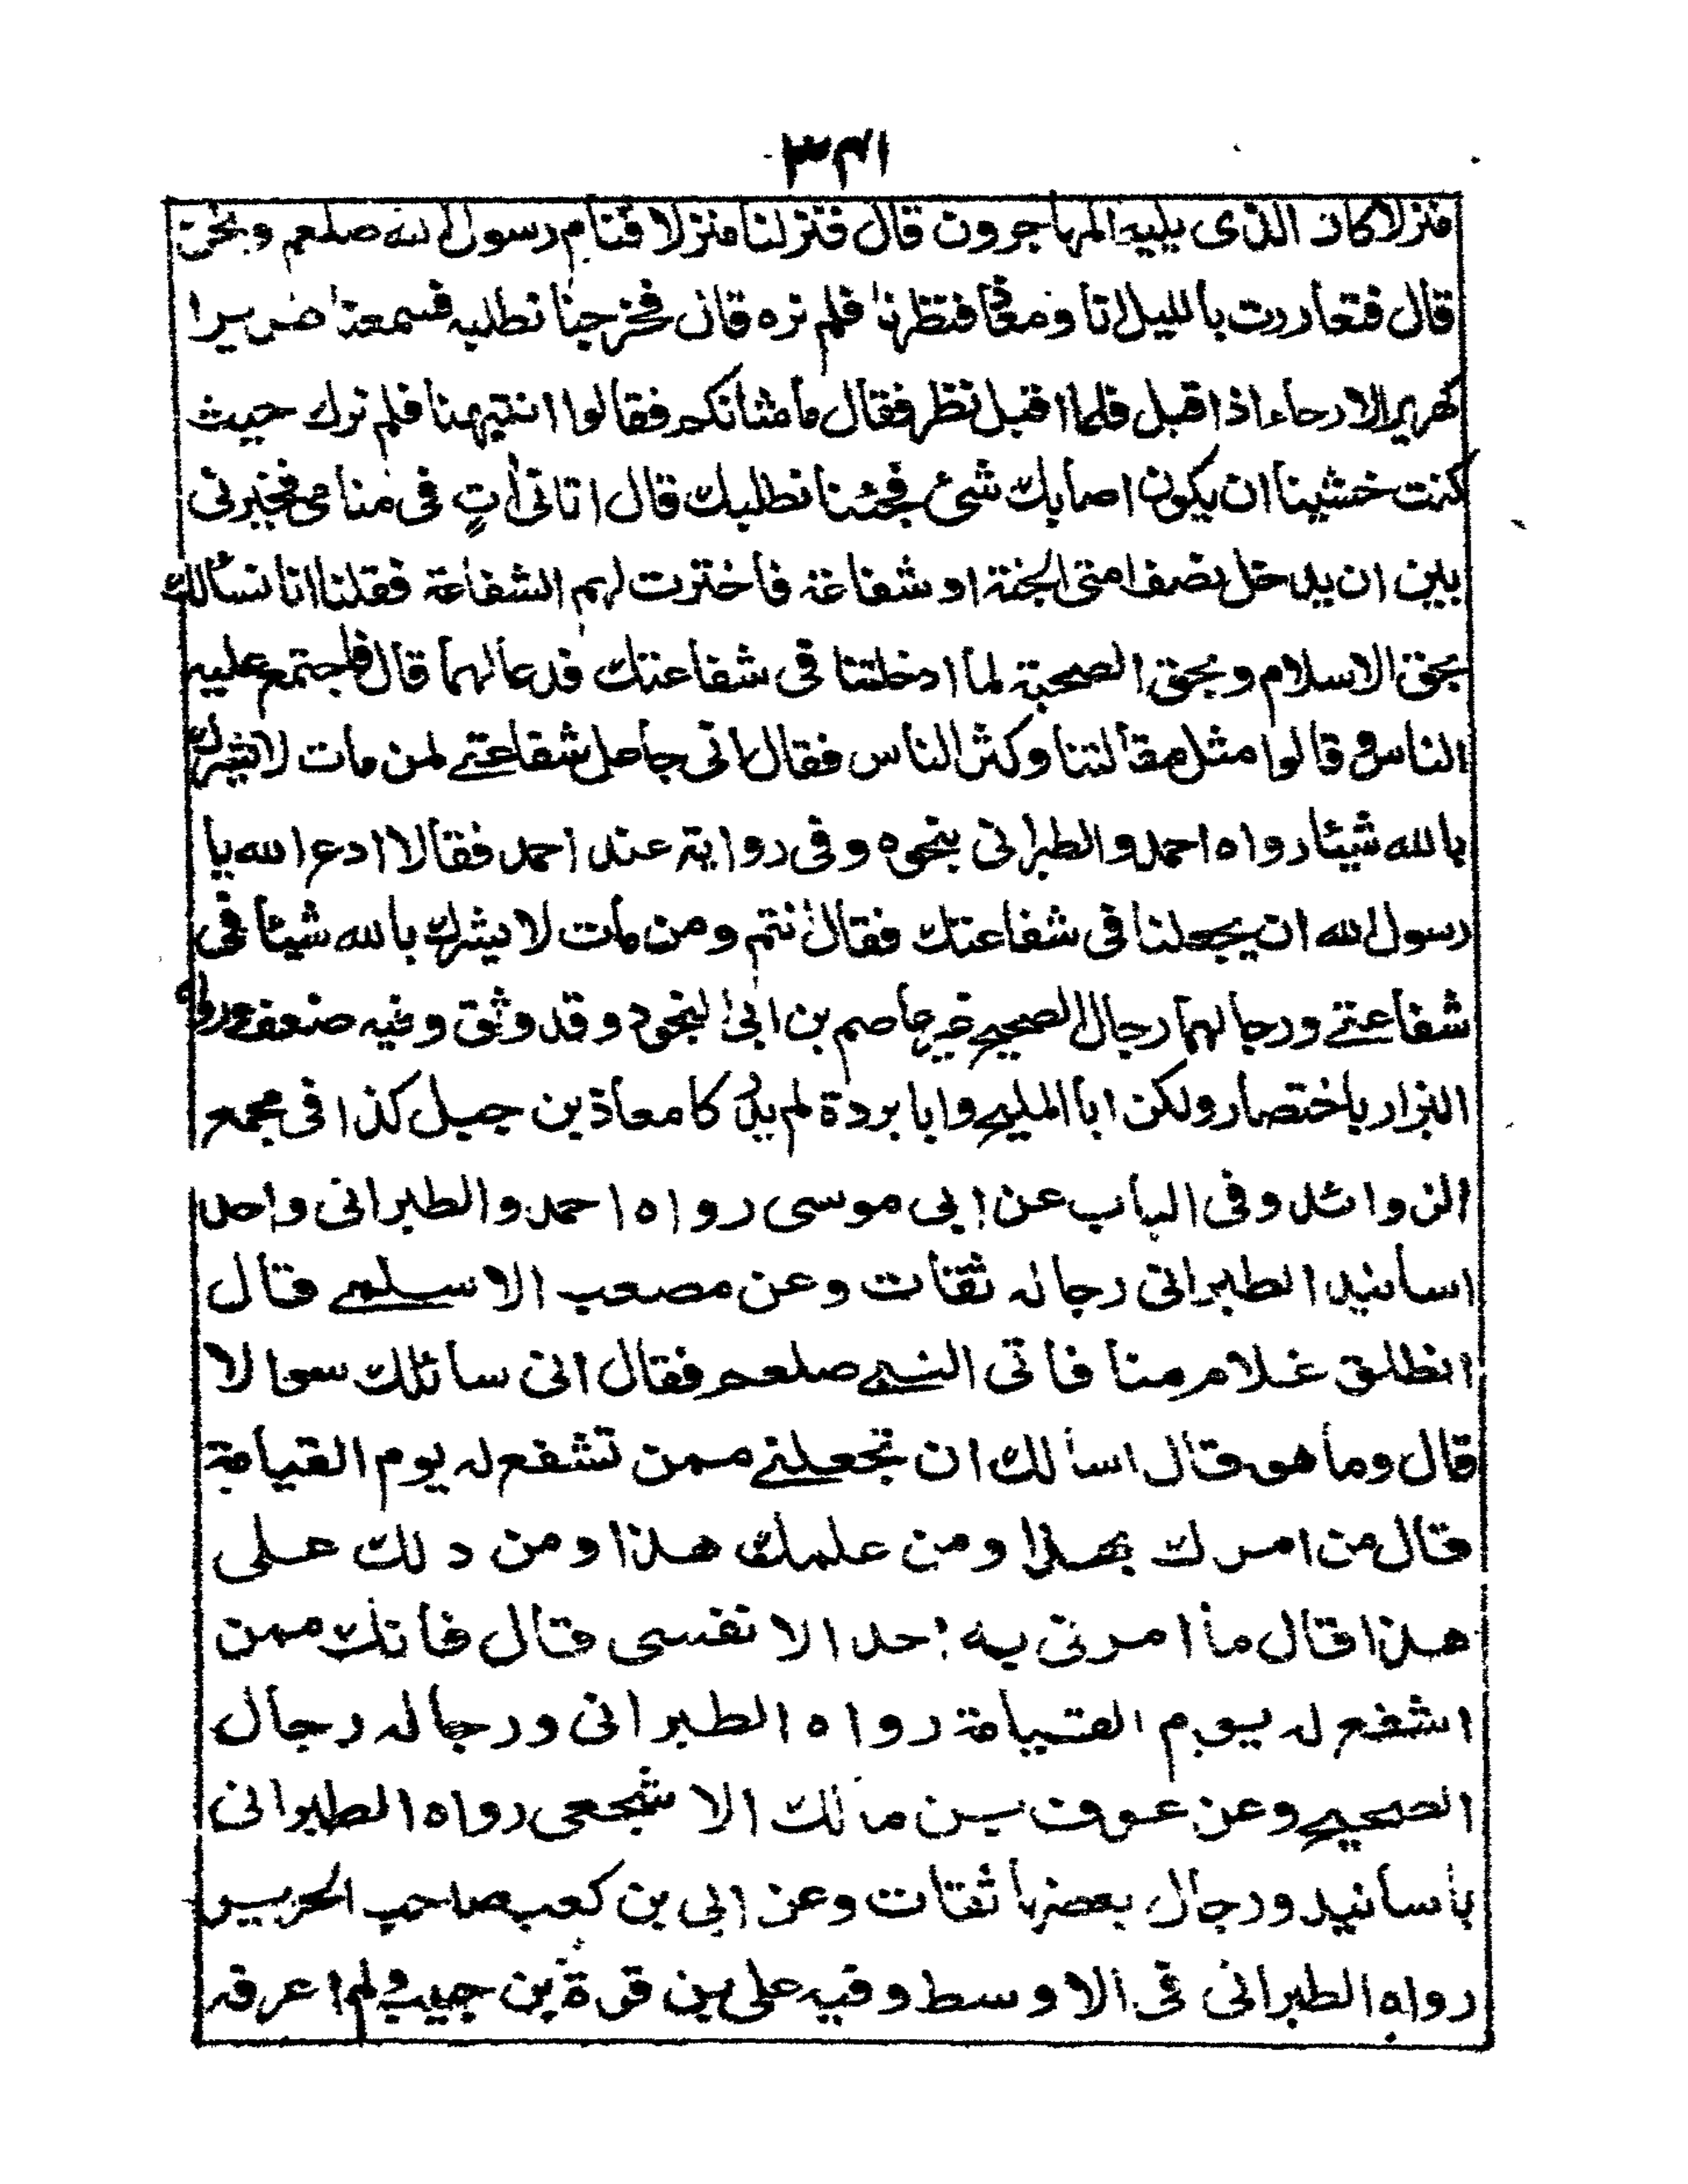 ۳۴۱
منزلا كان الذى يليه المهاجرون قال فنزلنا منزلا فنام رسول الله صلعم ونحن
قال فتعاررت بالليل انا ومعاذ فنظرنا فلم نره قال فخرجنا نطلبه فسمعنا هزيزا
كهزيز الارحاء اذا قبل فلما اقبل نظر فقال ما شانكم فقالوا انتبهنا فلم نرك حيث
كنت خشينا ان يكون اصابك شئ فجئنا نطلبك قال اتانى اٰتٍ فى منامى فخيرنى
بين ان يدخل نصف امتى الجنة او شفاعة فاخترت لهم الشفاعة فقلنا انا نسألك
بحق الاسلام وبحق الصحبة لما ادخلتنا فى شفاعتك فدعا لهما قال فاجتمع عليه
الناس وقالوا مثل مقالتنا وكثر الناس فقال انى جاعل شفاعتے لمن مات لا يشرك
بالله شيئا رواه احمد والطبرانى بنحوه وفى رواية عند احمد فقالا ادع الله يا
رسول الله ان يجعلنا فى شفاعتك فقال انتم ومن مات لا يشرك بالله شيئا فى
شفاعتے ورجالهما رجال الصحيح غير عاصم بن ابى النجود وقد وثق وفيه ضعف ورواه
البزار باختصار ولكن ابا المليح وابا بردة لم يدركا معاذ بن جبل كذا فى مجمع
الزوائد وفى الباب عن ابى موسى رواه احمد والطبرانى واحد
اسانيد الطبرانى رجاله ثقات وعن مصعب الاسلمے قال
انطلق غلام منا فاتى النبے صلعم فقال انى سائلك سوالا
قال وما هو قال اسألك ان تجعلنے ممن تشفع له يوم القيامة
قال من امرك بهذا ومن علمك هذا ومن دلك على
هذا قال ما امرنى به احد الا نفسى قال فانك ممن
اشفع له يوم القيامة رواه الطبرانى ورجاله رجال
الصحيح وعن عوف بن مالك الاشجعى رواه الطبرانى
باسانيد ورجال بعضها ثقات وعن ابى بن كعب صاحب الحرير
رواه الطبرانى فى الاوسط وفيه على بن قرة بن حبيب ولم اعرفه